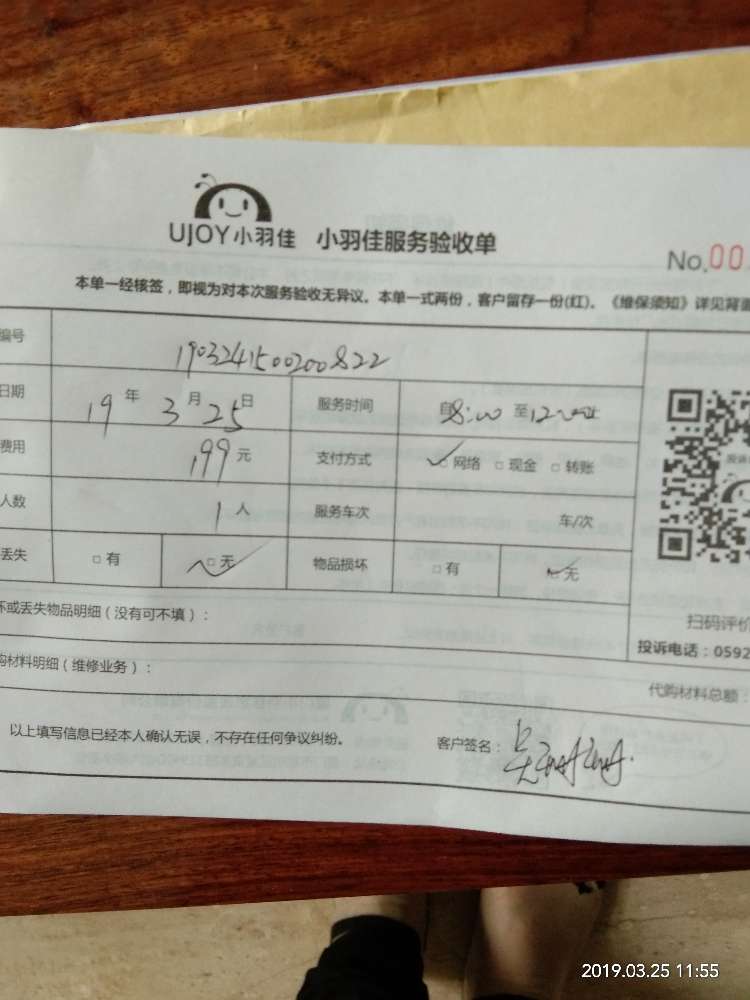 UJOY小羽佳 小羽佳服务验收单
No.00
本单一经核签，即视为对本次服务验收无异议。本单一式两份，客户留存一份(红)。《维保须知》详见背面
编号 190324150020082​2
日期 19年3月25日 服务时间 自8:00至12:00
费用 199元 支付方式 网络 现金 转账
人数 1人 服务车次 车/次
丢失 有 无 物品损坏 有 无
坏或丢失物品明细（没有可不填）：
扫码评价
投诉电话：0592
购材料明细（维修业务）：
代购材料总额：
以上填写信息已经本人确认无误，不存在任何争议纠纷。 客户签名：
2019.03.25 11:55